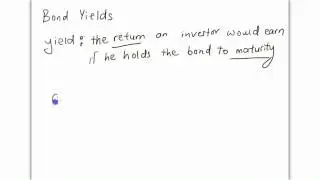 Bond Yields
yield: the return an investor would earn
if he holds the bond to maturity